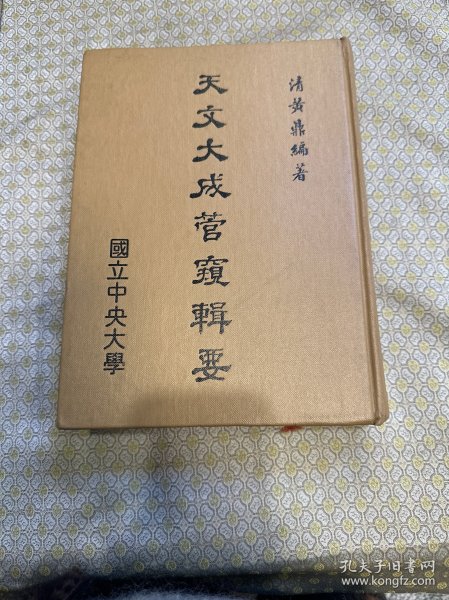 清黃鼎編著
天文大成管窺輯要
國立中央大學
孔夫子旧书网
www.kongfz.com